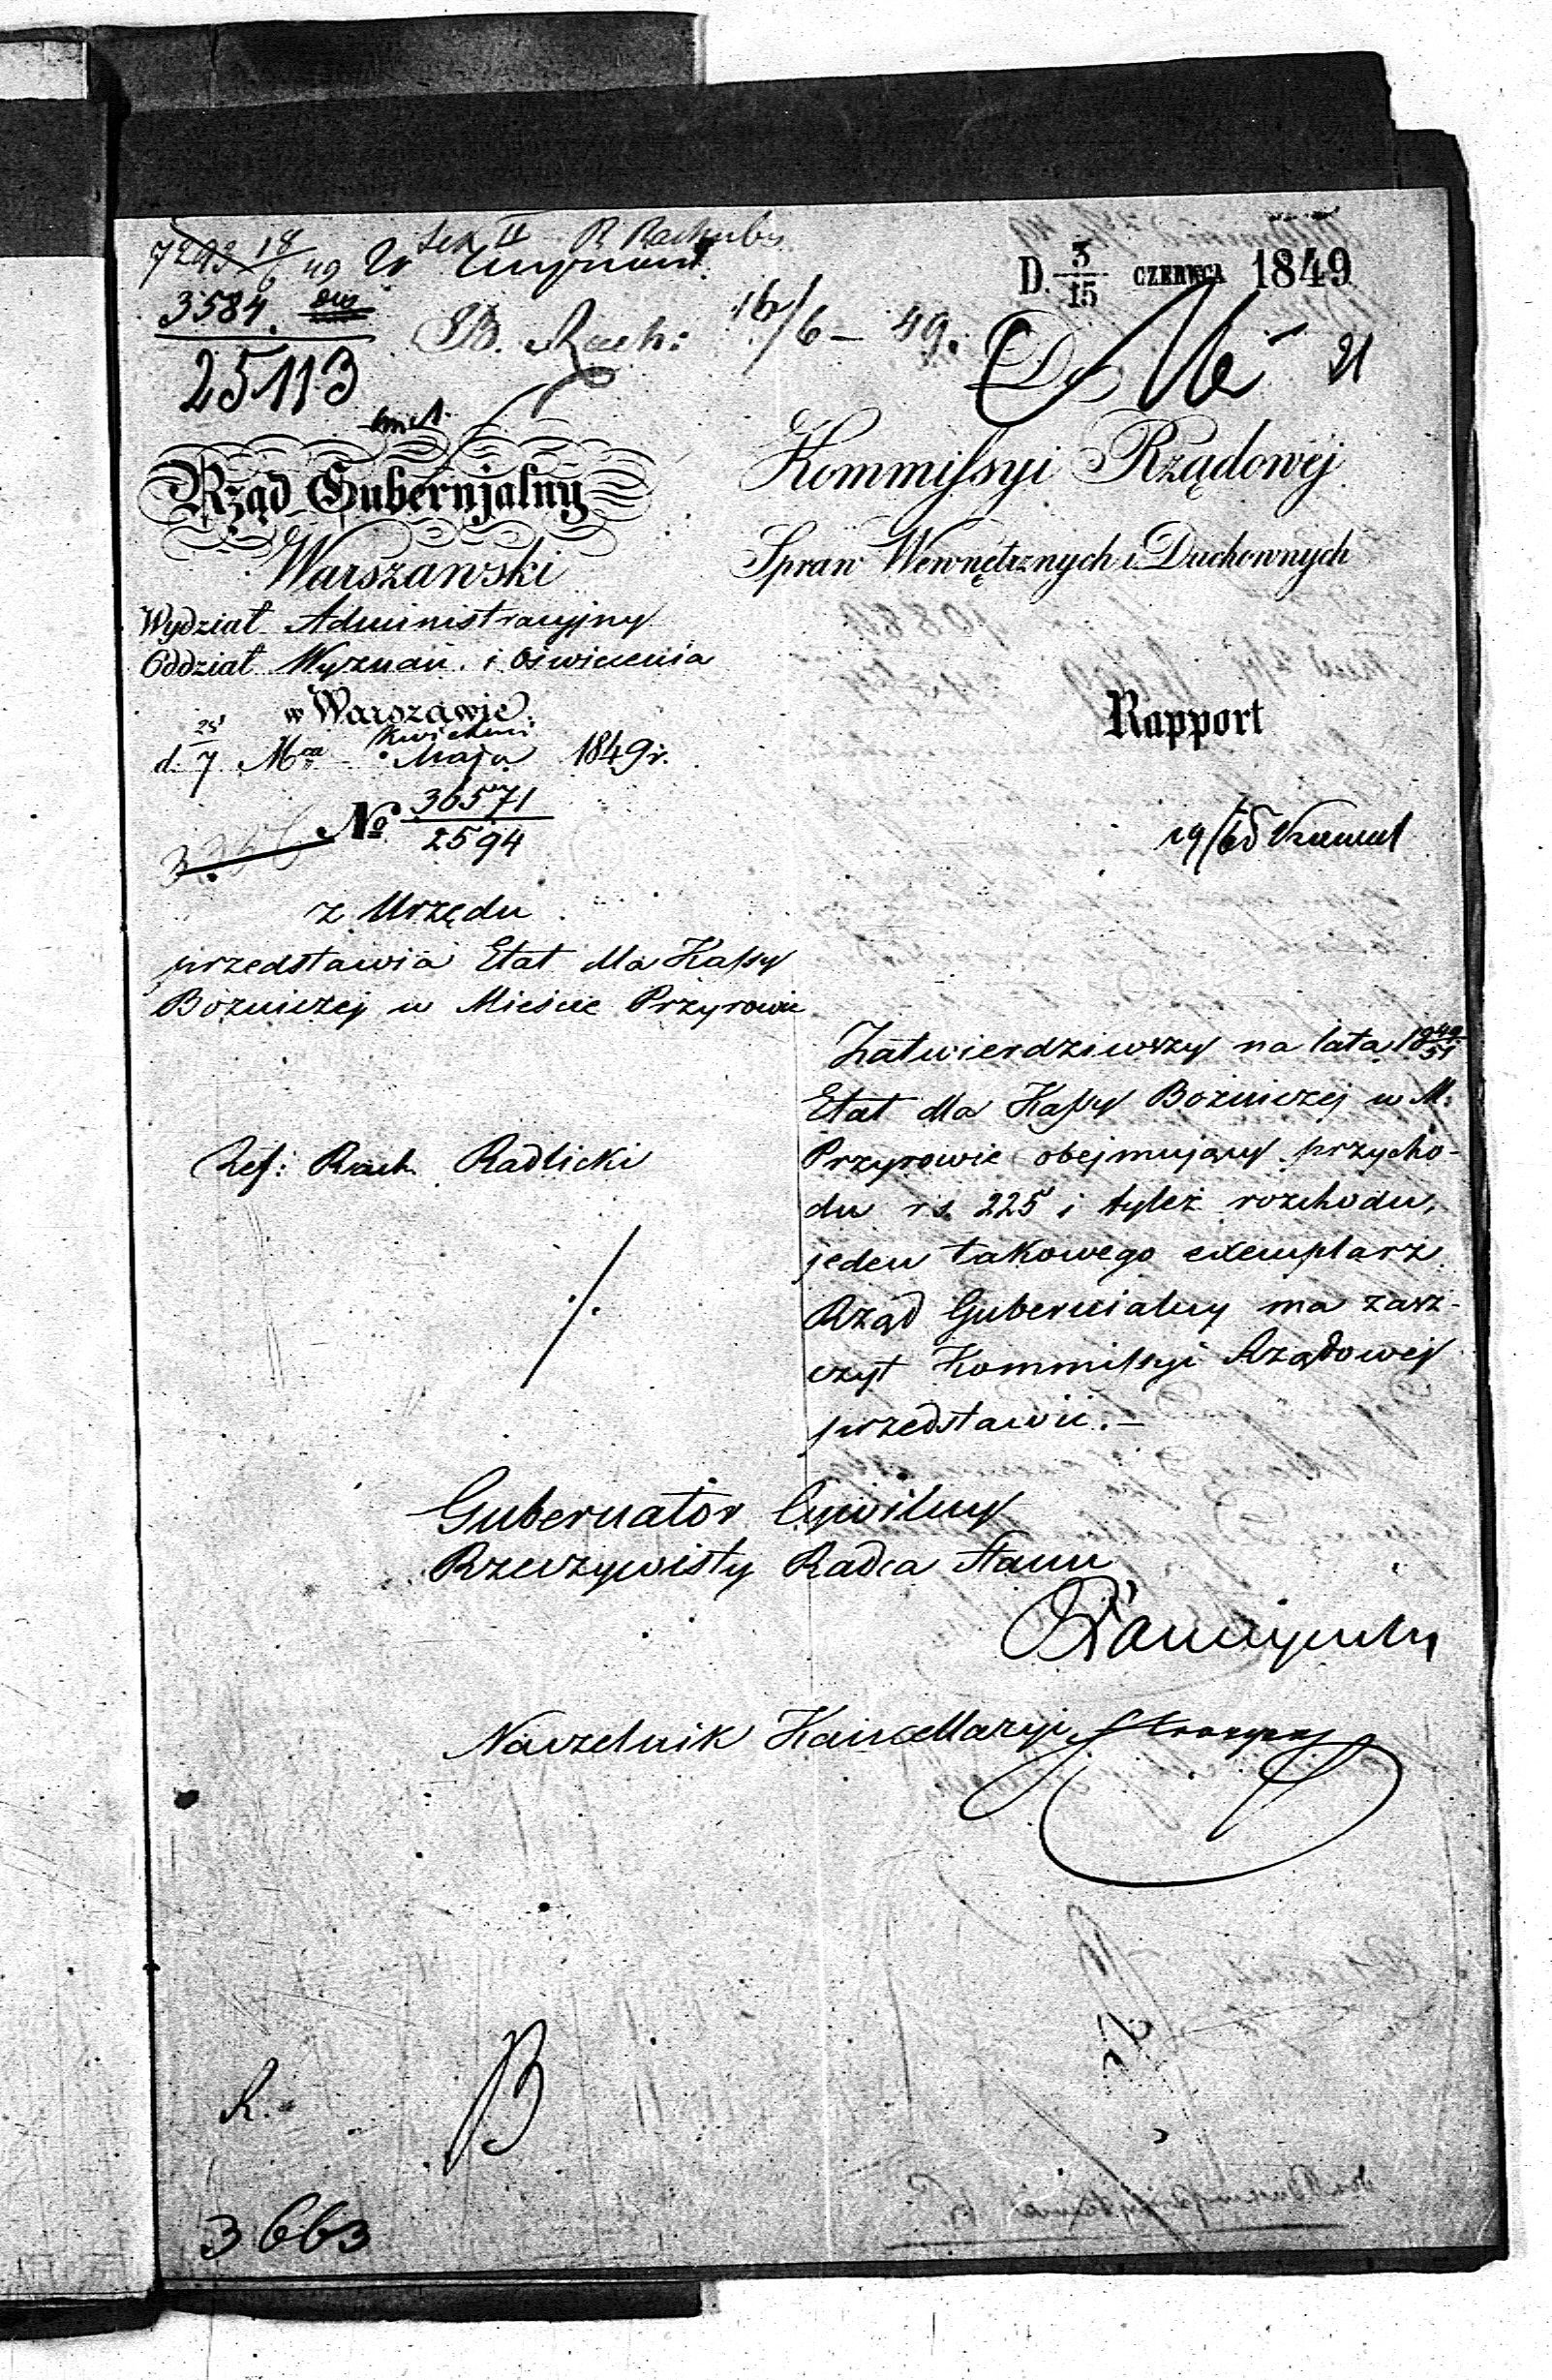 Sek II R Rachuby
7293 18/6 49
3584
25113
D. 3/15 CZERWCA 1849
B. Rach: 16/6 – 49.
Do
21
Rząd Gubernjalny
Warszawski
Wydział Administracyjny
Oddział Wyznań i Oświecenia
w Warszawie.
d. 25/7 Mca Kwietnia/Maja 1849 r.
No 36571/2594
Kommissyi Rządowéj
Spraw Wewnętrznych i Duchownych
Rapport
19/6
z Urzędu
przedstawia Etat dla Kassy
Bożniczej w Mieście Przyrowie
Ref: Rach. Radlicki
Zatwierdziwszy na lata 1849/51
Etat dla Kassy Bożniczej w M.
Przyrowie obejmujący przycho-
du rs. 225 i tyleż rozchodu,
jeden takowego exemplarz
Rząd Gubernialny ma zasz-
czyt Kommissyi Rządowej
przedstawić. –
Gubernator Cywilny
Rzeczywisty Radca Stanu
Naczelnik Kancellaryi
R.
B
3663